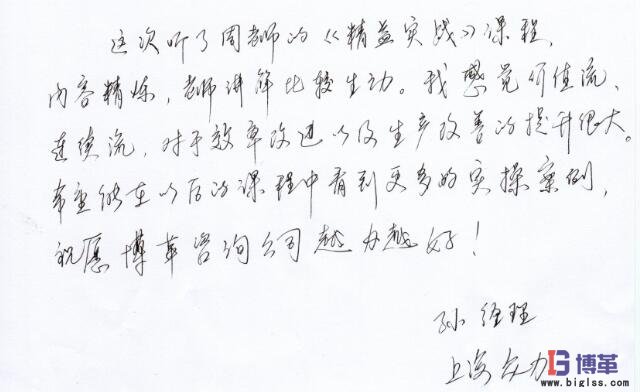 这次听了周老师的《精益实战》课程，
内容精炼，老师讲解比较生动。我感觉价值流、
连续流，对于效率改进以及生产改善的提升很大。
希望能在以后的课程中看到更多的实操案例，
祝愿博革咨询公司越办越好！
孙经理
上海友力
博革
www.biglss.com